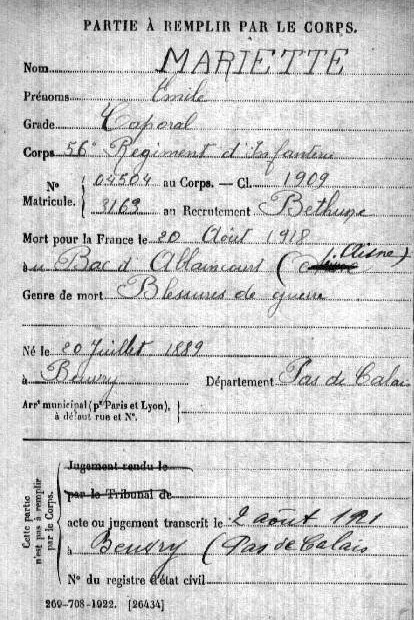 PARTIE À REMPLIR PAR LE CORPS.
Nom MARIETTE
Prénoms Émile
Grade Caporal
Corps 56e Régiment d'Infanterie
No Matricule. { 04504 au Corps. — Cl. 1909
3163 au Recrutement Bethune
Mort pour la France le 20 Août 1918
à au Bac d Ablaincourt (Aisne)
Genre de mort Blessures de guerre
Né le 20 Juillet 1889
à Beuvry Département Pas de Calais
Arrt municipal (pr Paris et Lyon), à défaut rue et No. {
Cette partie n'est pas à remplir par le Corps.
Jugement rendu le
par le Tribunal de
acte ou jugement transcrit le 2 août 1921
à Beuvry (Pas de Calais
No du registre d'état civil
269-708-1922. [26434]